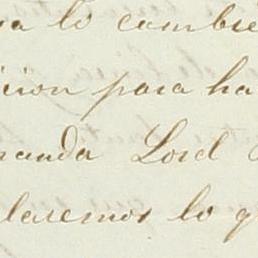 a lo combi
icion para ha
manda Lord
laremos lo q